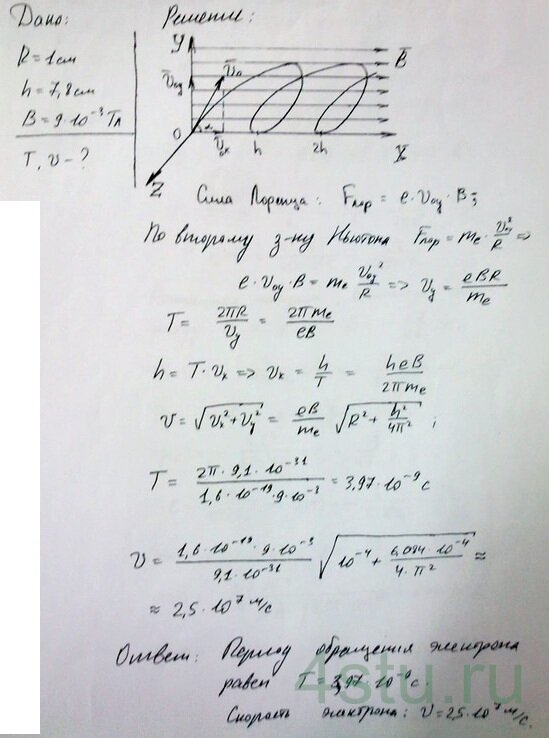 Дано:
Решение:
R = 1 см
h = 7,8 см
B = 9·10⁻³ Тл
T, υ - ?
Y
B̄
ῡ₀y
ῡ₀
α
O
ῡ₀x
h
2h
X
Z
Сила Лоренца: Fлор = e·υ₀y·B;
По второму з-ну Ньютона Fлор = mₑ·υ₀y²/R =>
e·υ₀y·B = mₑ υ₀y²/R => υy = eBR/mₑ
T = 2πR/υy = 2πmₑ/eB
h = T·υx => υx = h/T = heB/2πmₑ
υ = √(υx²+υy²) = eB/mₑ √(R² + h²/4π²) ;
T = 2π·9,1·10⁻³¹/1,6·10⁻¹⁹·9·10⁻³ = 3,97·10⁻⁹ с
υ = 1,6·10⁻¹⁹·9·10⁻³/9,1·10⁻³¹ √(10⁻⁴ + 6,084·10⁻⁴/4·π²) ≈
≈ 2,5·10⁷ м/с
Ответ: Период обращения электрона
равен T = 3,97·10⁻⁹ с.
Скорость электрона: υ = 2,5·10⁷ м/с.
4stu.ru